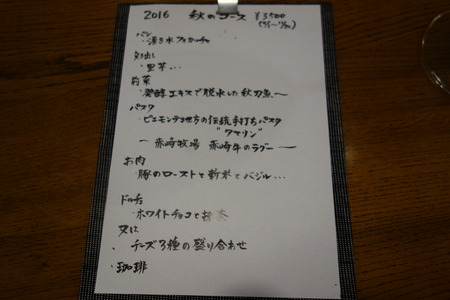 2016 秋のコース ¥3500
パン
・湧き水フォカッチャ
突き出し
・里芋...
前菜
・発酵エキスで脱水した秋刀魚〜
パスタ
・ピエモンテ地方の伝統手打ちパスタ
"タヤリン"
ー 赤崎牧場 赤崎牛のラグー ー
お肉
・豚のローストと新米とバジル...
ドルチェ
・ホワイトチョコと抹茶
又は
・チーズ3種の盛り合わせ
・珈琲